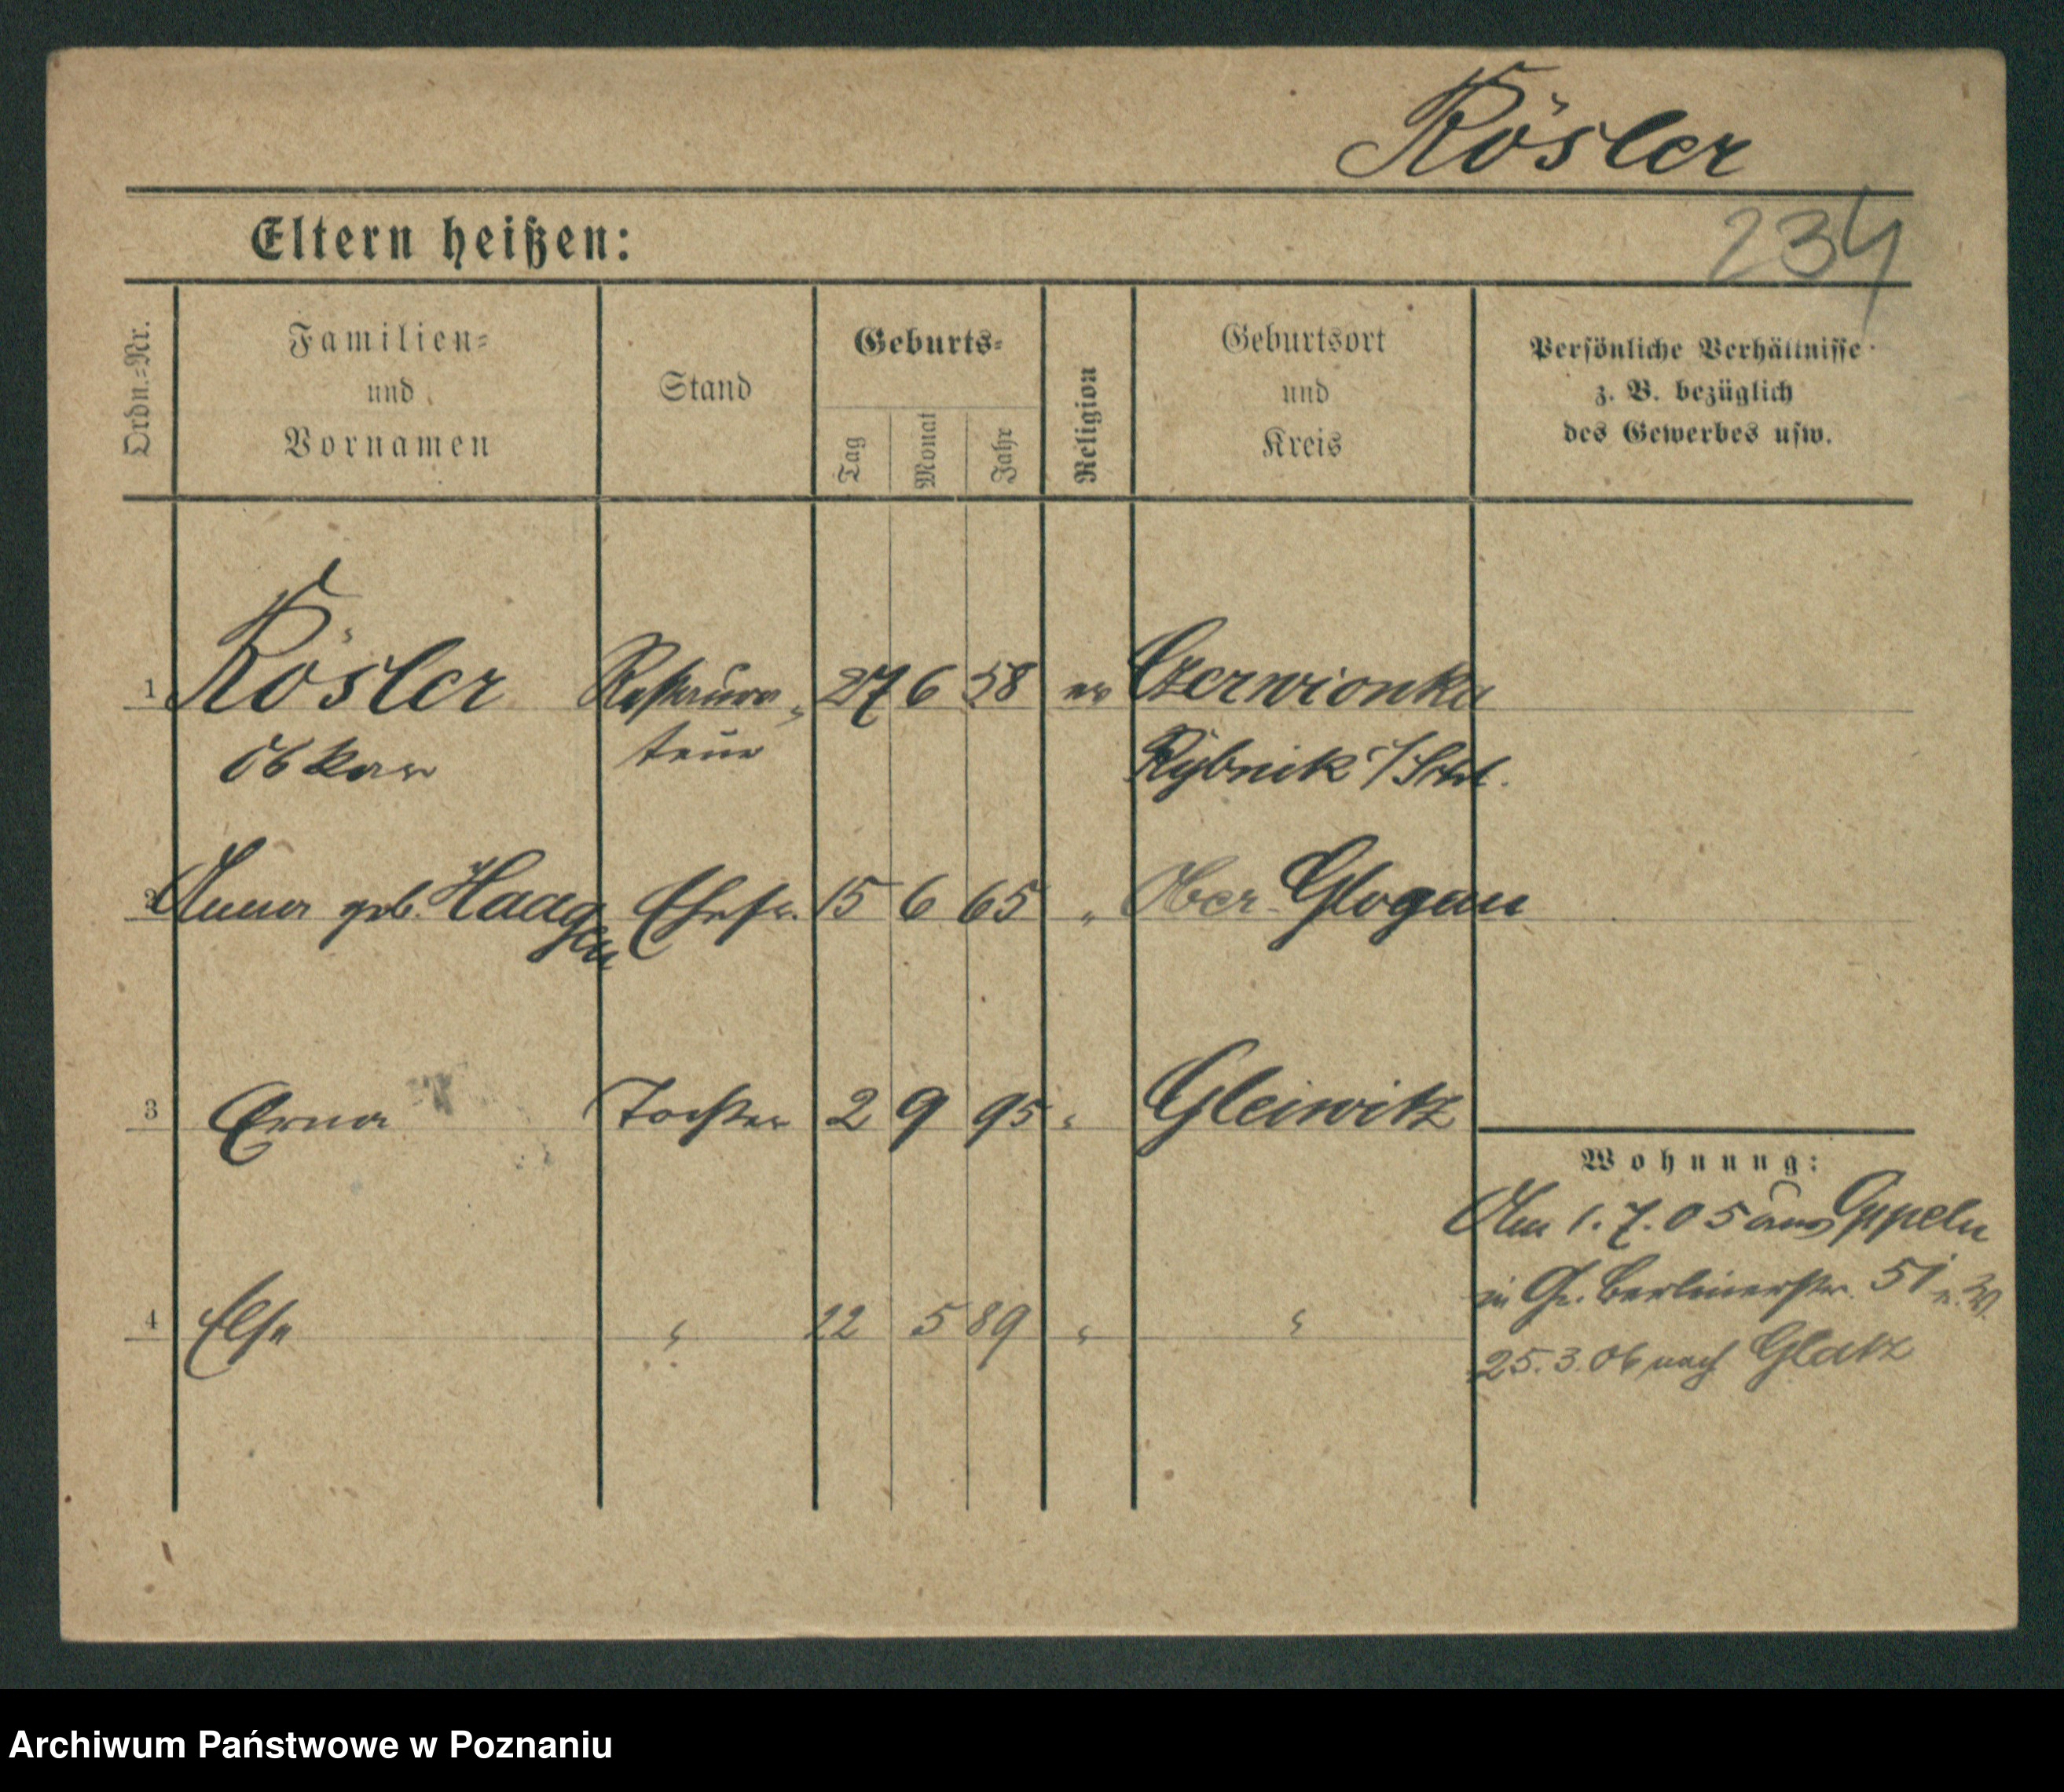 Rösler
Eltern heißen:
234
Ordn.-Nr.
Familien-
und
Vornamen
Stand
Geburts-
Tag
Monat
Jahr
Religion
Geburtsort
und
Kreis
Persönliche Verhältnisse
z. B. bezüglich
des Gewerbes usw.
1 Rösler Restaura- 27 6 58 ev Czerwionka
Oskar teur Rybnik /Schl.
2 Anna geb. Haagen Ehefr. 15 6 65 " Ober-Glogau
3 Erna Tochter 2 9 95 " Gleiwitz
Wohnung:
Am 1.7.05 aus Oppeln
in Gr. Berlinerstr. 51
4 Else " 22 5 89 " "
25.3.06 nach Glatz
Archiwum Państwowe w Poznaniu